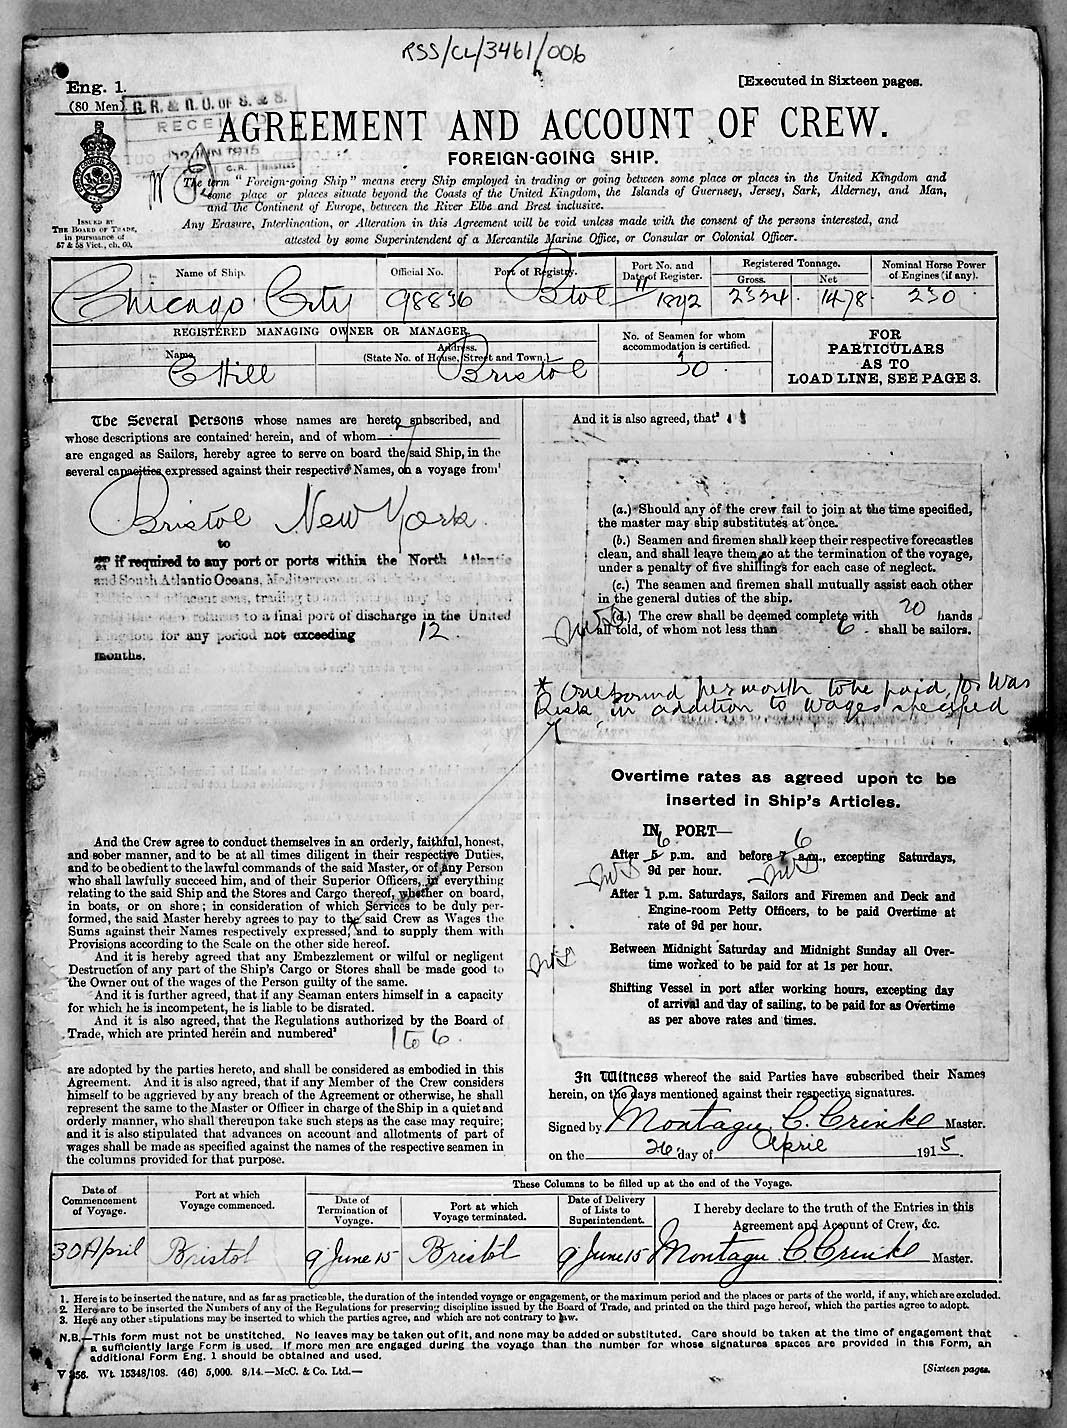 RSS/CL/3461/006
Eng. 1.
[Executed in Sixteen pages.
(80 Men)
G. R. & R. O. OF S. & S.
RECEIVED
JUN 1915
AGREEMENT AND ACCOUNT OF CREW.
FOREIGN-GOING SHIP.
The term "Foreign-going Ship" means every Ship employed in trading or going between some place or places in the United Kingdom and
some place or places situate beyond the Coasts of the United Kingdom, the Islands of Guernsey, Jersey, Sark, Alderney, and Man,
and the Continent of Europe, between the River Elbe and Brest inclusive.
Any Erasure, Interlineation, or Alteration in this Agreement will be void unless made with the consent of the persons interested, and
attested by some Superintendent of a Mercantile Marine Office, or Consular or Colonial Officer.
ISSUED BY
THE BOARD OF TRADE,
in pursuance of
57 & 58 Vict., ch. 60.
Name of Ship.
Official No.
Port of Registry.
Port No. and
Date of Register.
Registered Tonnage.
Gross.
Net
Nominal Horse Power
of Engines (if any).
Chicago City
98836
Bstol
11/1892
2324.
1478.
230
REGISTERED MANAGING OWNER OR MANAGER.
Name.
Address.
(State No. of House, Street and Town.)
No. of Seamen for whom
accommodation is certified.
FOR
PARTICULARS
AS TO
LOAD LINE, SEE PAGE 3.
C Hill
Bristol
30.
The Several Persons whose names are hereto subscribed, and
whose descriptions are contained herein, and of whom
are engaged as Sailors, hereby agree to serve on board the said Ship, in the
several capacities expressed against their respective Names, on a voyage from¹
Bristol to New York.
if required to any port or ports within the North Atlantic
and South Atlantic Oceans, Mediterranean
adjacent seas, trading to and
to a final port of discharge in the United
Kingdom for any period not exceeding 12.
months.
And the Crew agree to conduct themselves in an orderly, faithful, honest,
and sober manner, and to be at all times diligent in their respective Duties,
and to be obedient to the lawful commands of the said Master, or of any Person
who shall lawfully succeed him, and of their Superior Officers, in everything
relating to the said Ship and the Stores and Cargo thereof, whether on board,
in boats, or on shore; in consideration of which Services to be duly per-
formed, the said Master hereby agrees to pay to the said Crew as Wages the
Sums against their Names respectively expressed, and to supply them with
Provisions according to the Scale on the other side hereof.
And it is hereby agreed that any Embezzlement or wilful or negligent
Destruction of any part of the Ship's Cargo or Stores shall be made good to
the Owner out of the wages of the Person guilty of the same.
And it is further agreed, that if any Seaman enters himself in a capacity
for which he is incompetent, he is liable to be disrated.
And it is also agreed, that the Regulations authorized by the Board of
Trade, which are printed herein and numbered² 1 to 6.
are adopted by the parties hereto, and shall be considered as embodied in this
Agreement. And it is also agreed, that if any Member of the Crew considers
himself to be aggrieved by any breach of the Agreement or otherwise, he shall
represent the same to the Master or Officer in charge of the Ship in a quiet and
orderly manner, who shall thereupon take such steps as the case may require;
and it is also stipulated that advances on account and allotments of part of
wages shall be made as specified against the names of the respective seamen in
the columns provided for that purpose.
And it is also agreed, that³
(a.) Should any of the crew fail to join at the time specified,
the master may ship substitutes at once.
(b.) Seamen and firemen shall keep their respective forecastles
clean, and shall leave them so at the termination of the voyage,
under a penalty of five shillings for each case of neglect.
(c.) The seamen and firemen shall mutually assist each other
in the general duties of the ship.
(d.) The crew shall be deemed complete with 20 hands
all told, of whom not less than 6. shall be sailors.
* One pound per month to be paid, for War
Risk, in addition to wages specified
Overtime rates as agreed upon to be
inserted in Ship's Articles.
IN PORT—
After 5 6 p.m. and before 7 6 a.m., excepting Saturdays,
9d per hour.
After 1 p.m. Saturdays, Sailors and Firemen and Deck and
Engine-room Petty Officers, to be paid Overtime at
rate of 9d per hour.
Between Midnight Saturday and Midnight Sunday all Over-
time worked to be paid for at 1s per hour.
Shifting Vessel in port after working hours, excepting day
of arrival and day of sailing, to be paid for as Overtime
as per above rates and times.
In Witness whereof the said Parties have subscribed their Names
herein, on the days mentioned against their respective signatures.
Signed by Montagu C. Crinks Master.
on the 26 day of April 1915.
Date of
Commencement
of Voyage.
Port at which
Voyage commenced.
These Columns to be filled up at the end of the Voyage.
Date of
Termination of
Voyage.
Port at which
Voyage terminated.
Date of Delivery
of Lists to
Superintendent.
I hereby declare to the truth of the Entries in this
Agreement and Account of Crew, &c.
30 April
Bristol
9 June 15
Bristol
9 June 15
Montagu C. Crinks Master.
1. Here is to be inserted the nature, and as far as practicable, the duration of the intended voyage or engagement, or the maximum period and the places or parts of the world, if any, which are excluded.
2. Here are to be inserted the Numbers of any of the Regulations for preserving discipline issued by the Board of Trade, and printed on the third page hereof, which the parties agree to adopt.
3. Here any other stipulations may be inserted to which the parties agree, and which are not contrary to law.
N.B.—This form must not be unstitched. No leaves may be taken out of it, and none may be added or substituted. Care should be taken at the time of engagement that
a sufficiently large Form is used. If more men are engaged during the voyage than the number for whose signatures spaces are provided in this Form, an
additional Form Eng. 1 should be obtained and used.
V 356. Wt. 15348/108. (46) 5,000. 8/14.—McC. & Co. Ltd.—
[Sixteen pages.